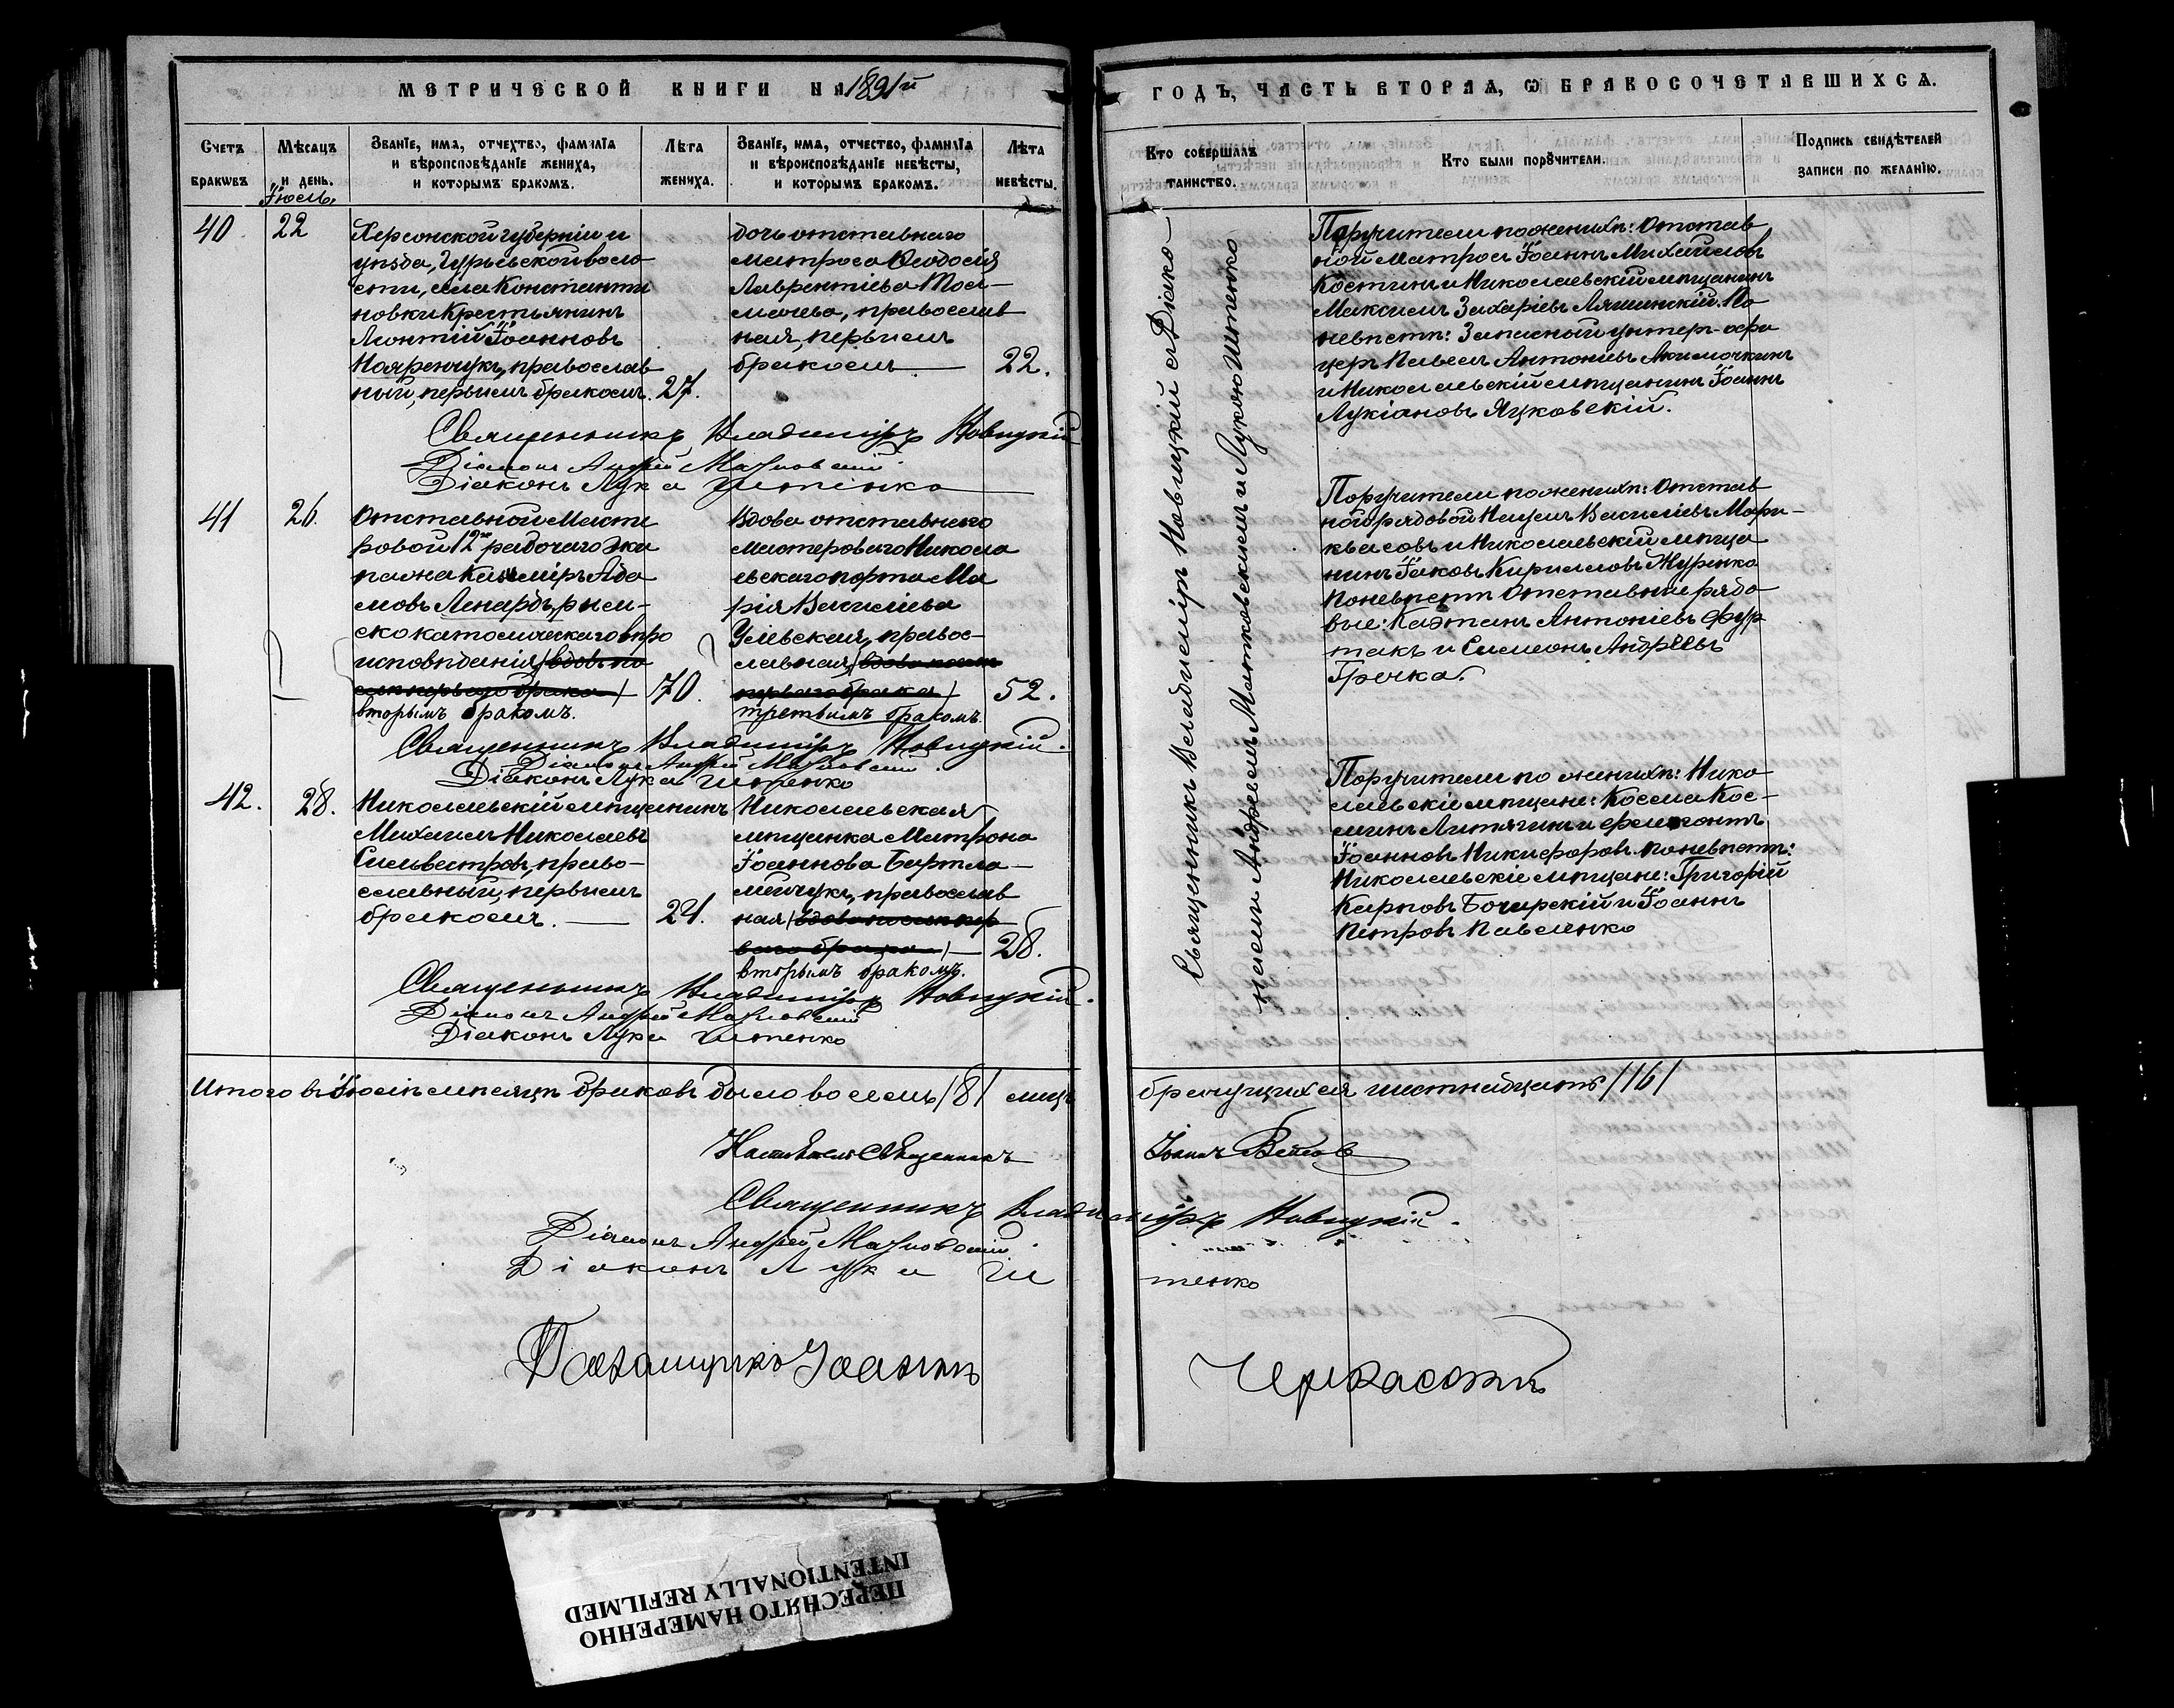 МЕТРИЧЕСКОЙ КНИГИ НА 1891й
ГОДЪ, ЧАСТЬ ВТОРАЯ, Ѡ БРАКОСОЧЕТАВШИХСЯ.
Счетъ браковъ
Мѣсяцъ и день.
Званіе, има, отчехтво, фамиліа
и вѣропсповѣданіе жениха,
и которымъ бракомъ.
Лѣта жениха.
Званіе, има, отчество, фамиліа
и вѣроисповѣданіе невѣсты,
и которымъ бракомъ.
Лѣта невѣсты.
Кто совершалъ таинство.
Кто были порꙋчители.
Подпись свидѣтелей
записи по желанію.
Іюль
40. 22
Херсонской губерніи и
уѣзда, Гурьевской воло
сти, села Константи
новки Крестьянинъ
Леонтій Іоанновъ
Нояренчукъ, православ
ный, первымъ бракомъ. 27.
дочь отставнаго
матроса Ѳеодосія
Лаврентіева Тол-
мачева, православ
ная, первымъ
бракомъ 22.
Поручители по женихѣ: Отстав
ной матросъ Іоаннъ Михайловъ
Костинъ и Николаевскій мѣщанинъ
Максимъ Захаріевъ Ляшинскій. По
невѣстѣ: Запасный унтеръ-офи
церъ Павелъ Антоніевъ Акимочкинъ
и Николаевскій мѣщанинъ Іоаннъ
Лукіановъ Яцковскій.
Священникъ Владиміръ Новицкій
Діаконъ Андрей
Діаконъ Лука Шпенко
41 26.
Отставной Масте
ровой 12го рабочаго Эки
пажа Казиміръ Ада
мовъ Ленардъ, рим-
ско католическаго вѣро
исповѣданія (вдовъ по
слѣ перваго брака)
вторымъ бракомъ. 70.
Вдова отставнаго
мастероваго Никола
евскаго порта Ма
рія Василіева
Улевская, правос-
лавная, (вдова послѣ
перваго брака)
третьимъ бракомъ. 52.
Поручители по женихѣ: Отстав
ной рядовой Наумъ Василіевъ Мори-
квасовъ и Николаевскій мѣща
нинъ Іаковъ Кирилловъ Журенко
По невѣстѣ Отставные рядо
вые: Каэтанъ Антоніевъ Фур
такъ и Симеонъ Андреевъ
Гречка.
Священникъ Владиміръ Новицкій.
Діаконъ Андрей
Діаконъ Лука Шпенко
42. 28.
Николаевскій мѣщанинъ
Михаилъ Николаевъ
Сильвестровъ, право-
славный, первымъ
бракомъ. 24.
Николаевская
мѣщанка Матрона
Іоаннова Бартла-
мейчукъ, православ
ная (вдова послѣ пер
ваго брака)
вторымъ бракомъ. 28.
Поручители по женихѣ: Нико
лаевскіе мѣщане: Косма Кос-
минъ Литягинъ и Ферапонтъ
Іоанновъ Никифоровъ. по невѣстѣ:
Николаевскіе мѣщане: Григорій
Карповъ Бочарскій и Іоаннъ
Петровъ Павленко
Священникъ Владиміръ Новицкій.
Діаконъ Андрей
Діаконъ Лука Шпенко
Священникъ Владиміръ Новицкій съ Діако-
нами Андреемъ и Лукою Шпенко
Итого въ Іюлѣ мѣсяцѣ браковъ было восемь /8/ лицъ
брачущихся шестнадцать /16/
Священникъ
Іоаннъ
Священникъ Владиміръ Новицкій.
Діаконъ Андрей
Діаконъ Лука Шпенко
Іоаннъ
Черкасскій
ПЕРЕСНЯТО НАМЕРЕННО
INTENTIONALLY REFILMED